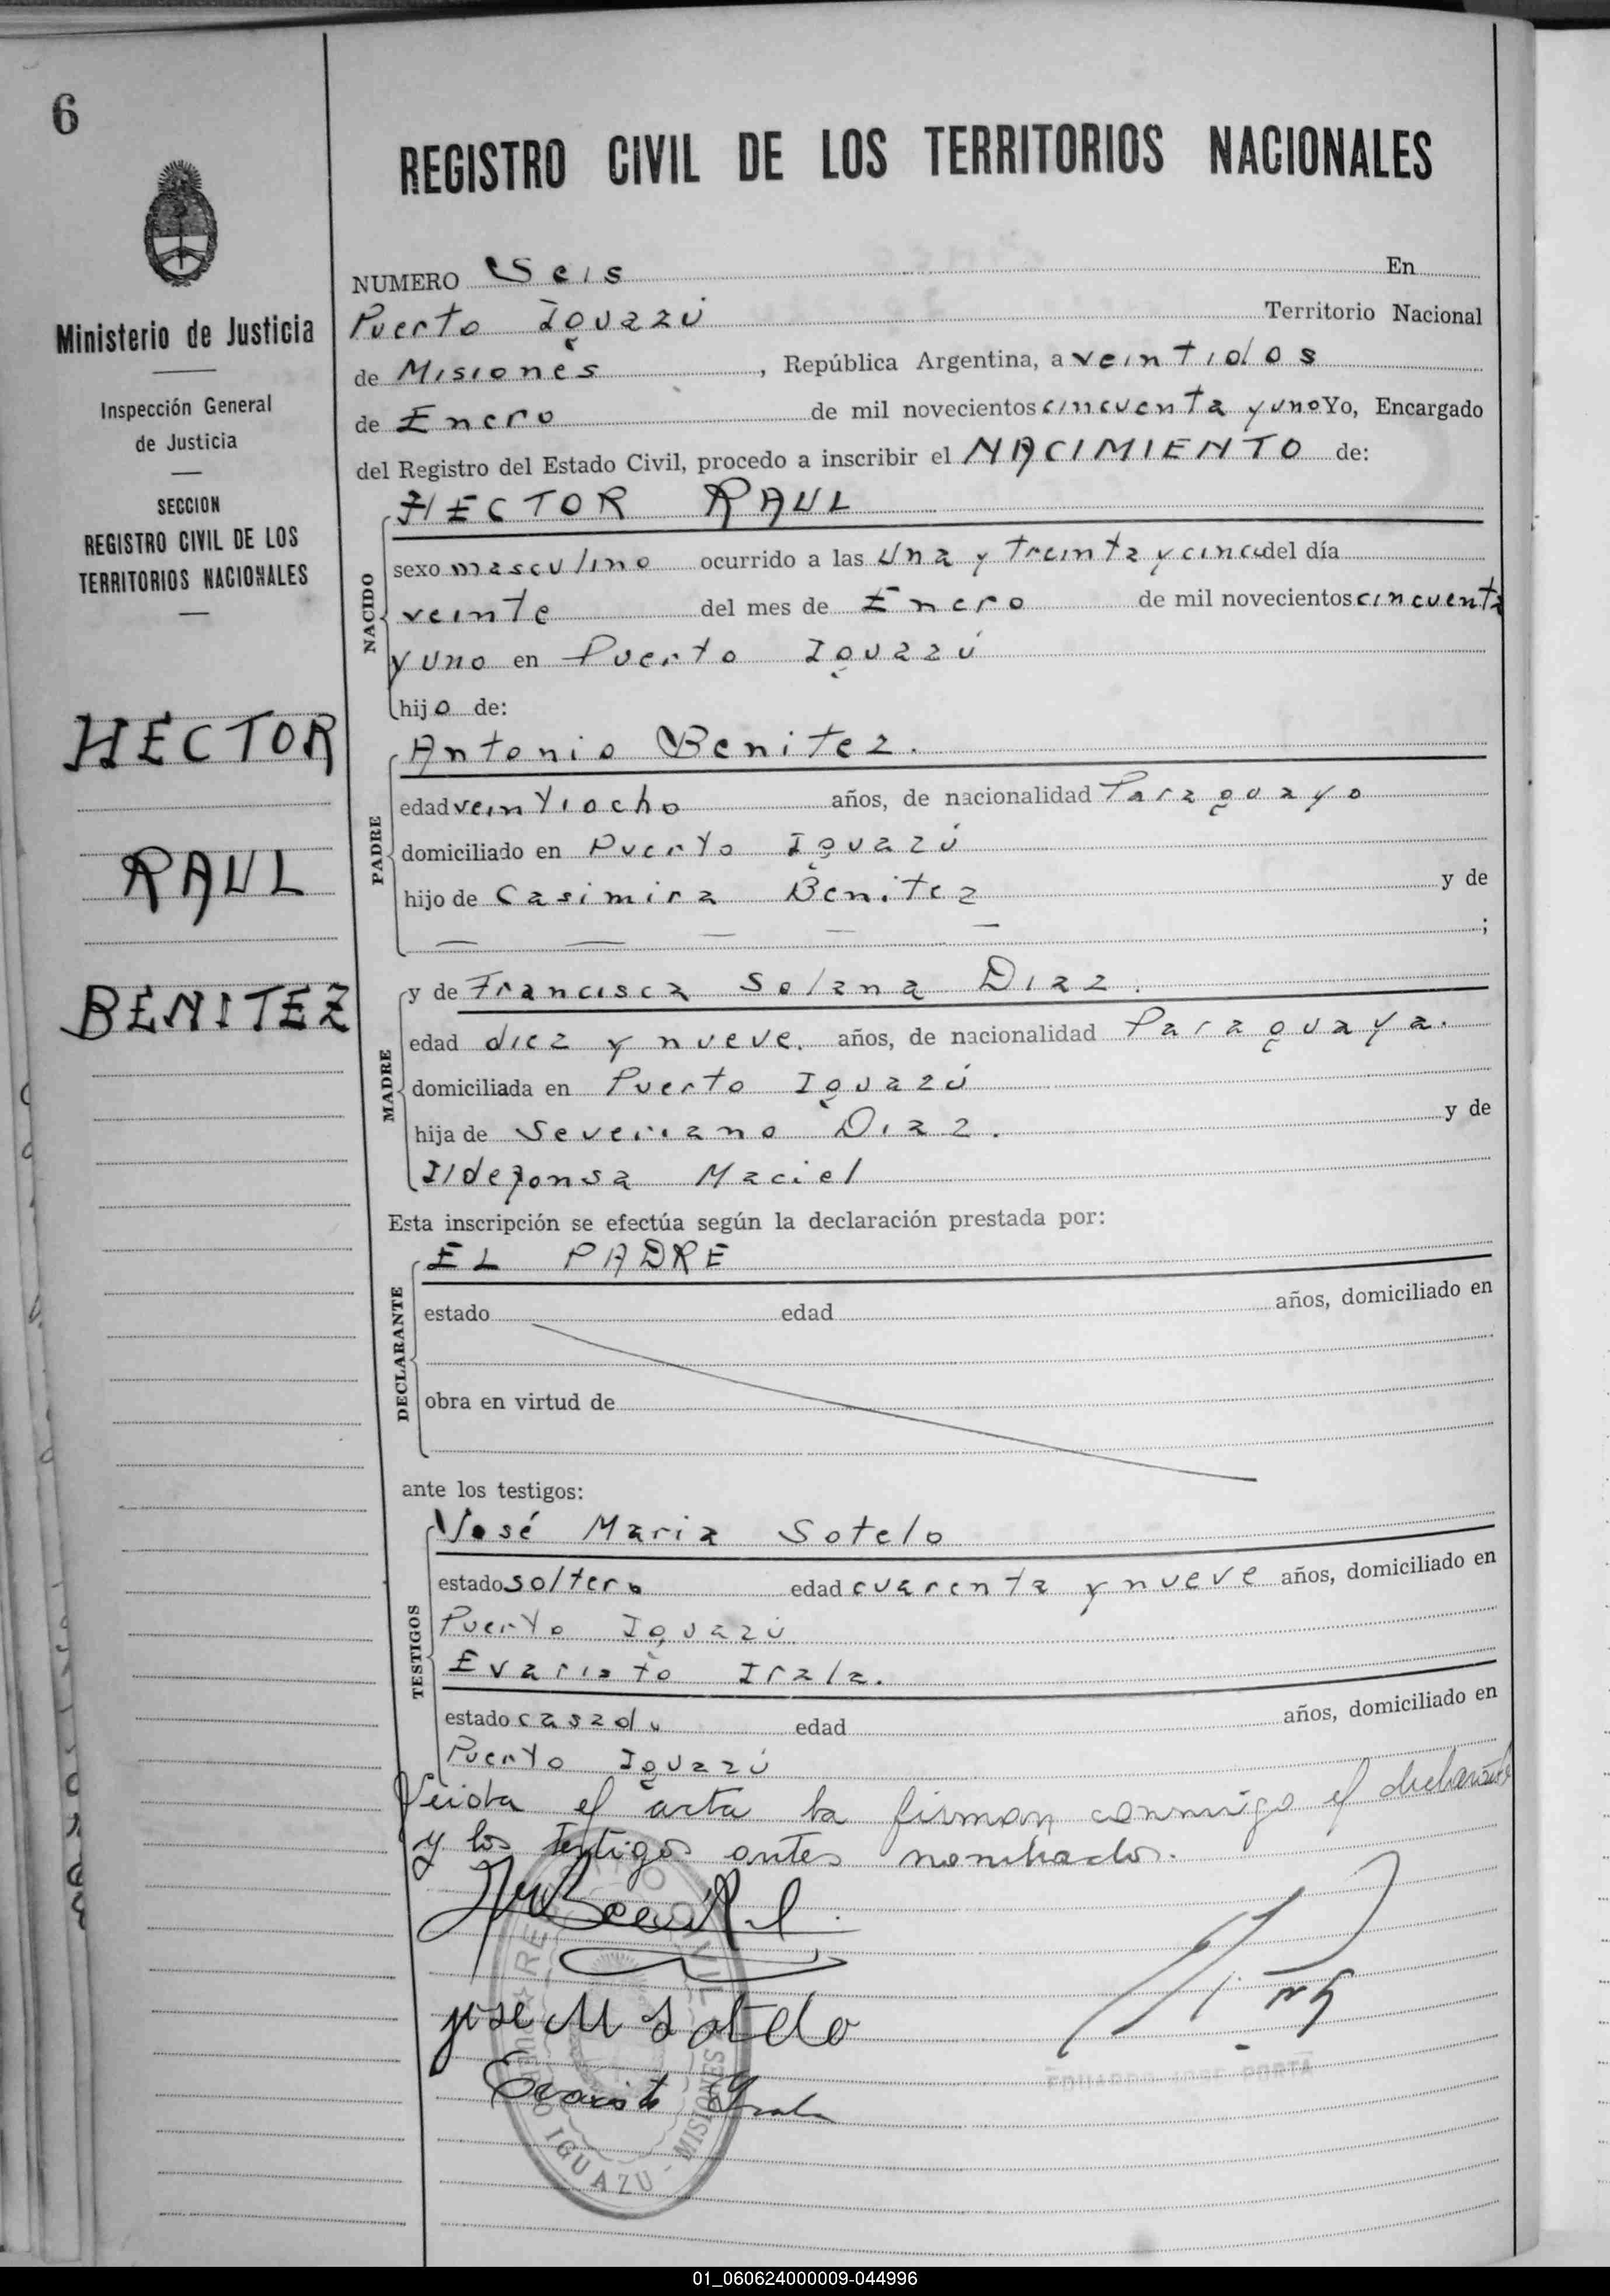 6
REGISTRO CIVIL DE LOS TERRITORIOS NACIONALES
Ministerio de Justicia
Inspección General
de Justicia
SECCION
REGISTRO CIVIL DE LOS
TERRITORIOS NACIONALES
HECTOR
RAUL
BENITEZ
NUMERO Seis En
Puerto Iguazú Territorio Nacional
de Misiones, República Argentina, a veintidos
de Enero de mil novecientos cincuenta y uno Yo, Encargado
del Registro del Estado Civil, procedo a inscribir el NACIMIENTO de:
NACIDO
HECTOR RAUL
sexo masculino ocurrido a las una y treinta y cinco del día
veinte del mes de Enero de mil novecientos cincuenta
y uno en Puerto Iguazú
hijo de:
PADRE
Antonio Benitez.
edad veintiocho años, de nacionalidad Paraguayo
domiciliado en Puerto Iguazú
hijo de Casimira Benitez y de
— — — — — ;
MADRE
y de Francisca Solana Diaz.
edad diez y nueve. años, de nacionalidad Paraguaya.
domiciliada en Puerto Iguazú
hija de Severiano Diaz. y de
Ildefonsa Maciel
Esta inscripción se efectúa según la declaración prestada por:
DECLARANTE
EL PADRE
estado edad años, domiciliado en
obra en virtud de
ante los testigos:
TESTIGOS
José Maria Sotelo
estado soltero edad cuarenta y nueve años, domiciliado en
Puerto Iguazú
Evaristo Irala.
estado casado edad años, domiciliado en
Puerto Iguazú
Leida el acta la firman conmigo el declarante
y los testigos antes nombrados.
jose M Sotelo
Evaristo Irala
EDUARDO JOSE PORTA
IGUAZU - MISIONES
01_060624000009-044996